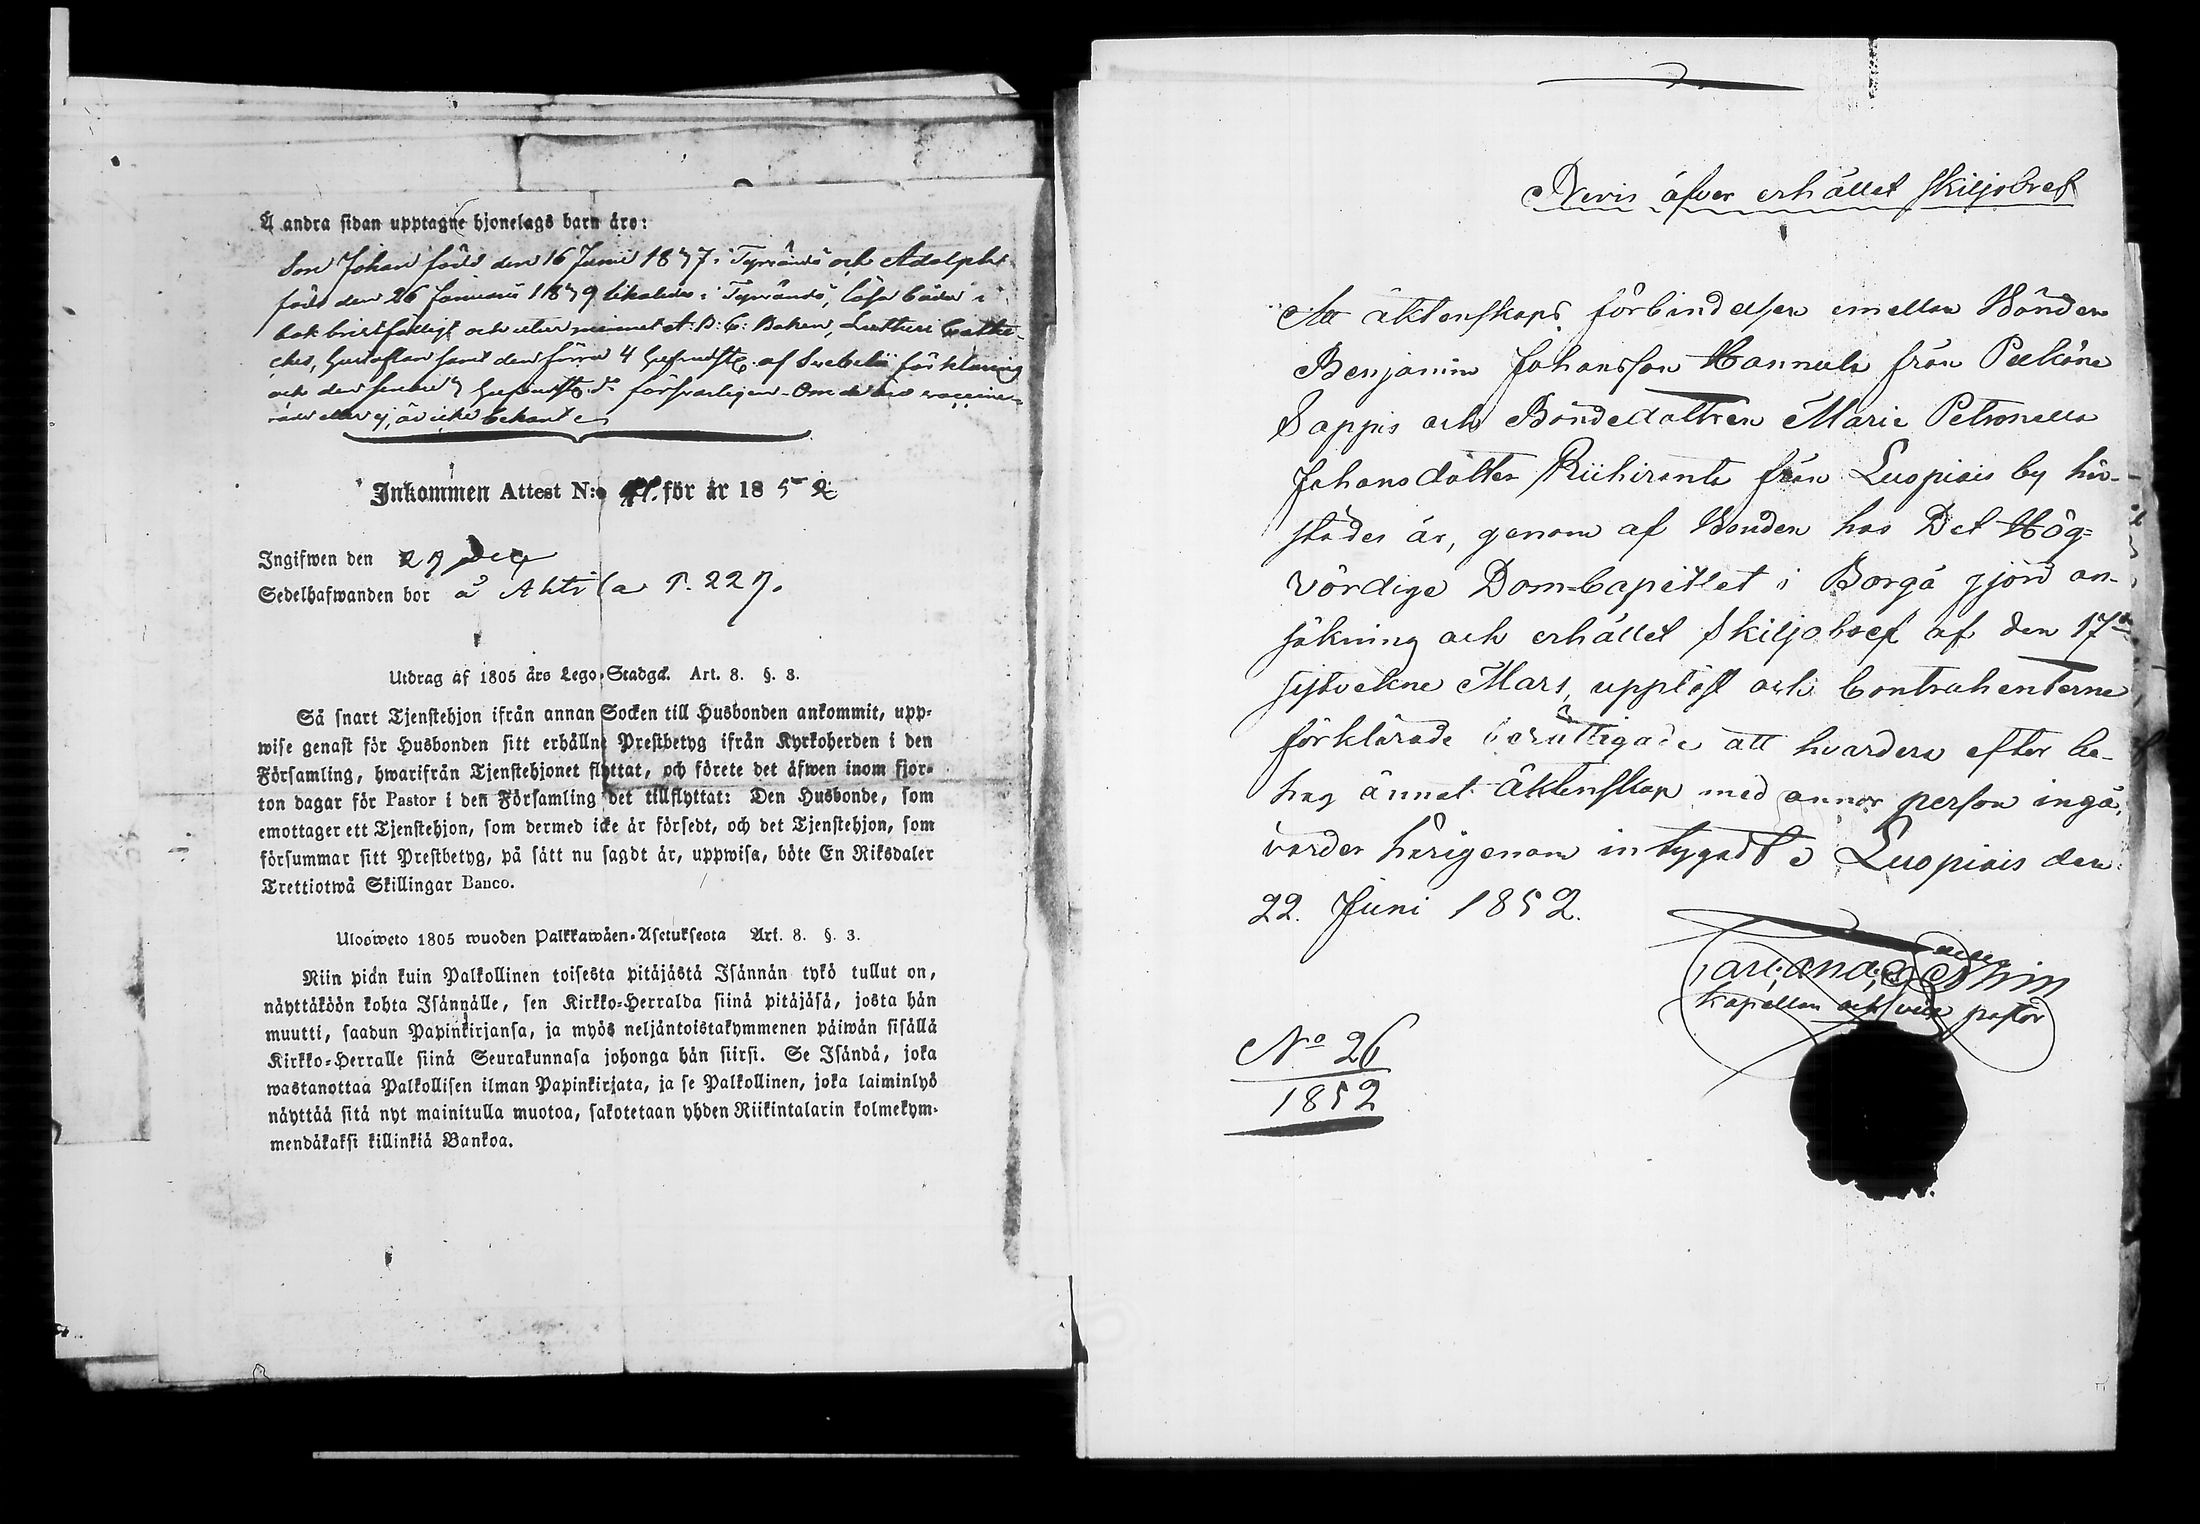 Å andra sidan upptagne hjonelags barn äro:
Son Johan född den 16 Junii 1837 i Tyrvändö och Adolph
född den 26 Januarii 1839 likaledes i Tyrvändö, läsa båda i
bok bristfälligt och utur minnet A: B: C: Boken, Lutheri Cathe-
ches, Hustaflan samt den förra 4 af Svebelii förklaring
och den senare försvarligen. Om de äro vaccine-
rade eller ej, är icke bekant
Inkommen Attest N:o för år 1852
Ingifwen den 29 Dec
Sedelhafwanden bor å Ahtila P. 227.
Utdrag af 1805 års Lego-Stadga. Art. 8. §. 3.
Så snart Tjenstehjon ifrån annan Socken till Husbonden ankommit, upp-
wise genast för Husbonden sitt erhållne Prestbetyg ifrån Kyrkoherden i den
Församling, hwarifrån Tjenstehjonet flyttat, och förete det äfwen inom fjor-
ton dagar för Pastor i den Församling det tillflyttat: Den Husbonde, som
emottager ett Tjenstehjon, som dermed icke är försedt, och det Tjenstehjon, som
försummar sitt Prestbetyg, på sätt nu sagdt är, uppwisa, böte En Riksdaler
Trettiotwå Skillingar Banco.
Ulosweto 1805 wuoden Palkkawäen-Asetuksesta Art. 8. §. 3.
Niin piän kuin Palkollinen toisesta pitäjästä Isännän tykö tullut on,
näyttäköön kohta Isännälle, sen Kirkko-Herralda siinä pitäjäsä, josta hän
muutti, saadun Papinkirjansa, ja myös neljäntoistakymmenen päiwän sisällä
Kirkko-Herralle siinä Seurakunnasa johonga hän siirsi. Se Isändä, joka
wastanottaa Palkollisen ilman Papinkirjata, ja se Palkollinen, joka laiminlyö
näyttää sitä nyt mainitulla muotoa, sakotetaan yhden Riikintalarin kolmekym-
mendäkaksi killinkiä Bankoa.
Bevis öfver erhållet skiljobref
Att äktenskaps förbindelsen emellan Bonden
Benjamin Johansson Hannula från Pelkäne
Sappis och Bondedottren Maria Petronella
Johansdotter Riihiranta från Luopiois by här-
städes är, genom af Bonden hos Det Hög-
vördige Dom-Capitlet i Borgå gjord an-
sökning och erhållet skiljobref af den 17de
sistvekne Mars, upplöst och Contrahenterne
förklarade berättigade att hvardera efter be-
hag annat äktenskap med annor person ingå,
varder härigenom intygadt Luopiois den
22. Juni 1852.
kapellan och vice pastor
No 26
1852